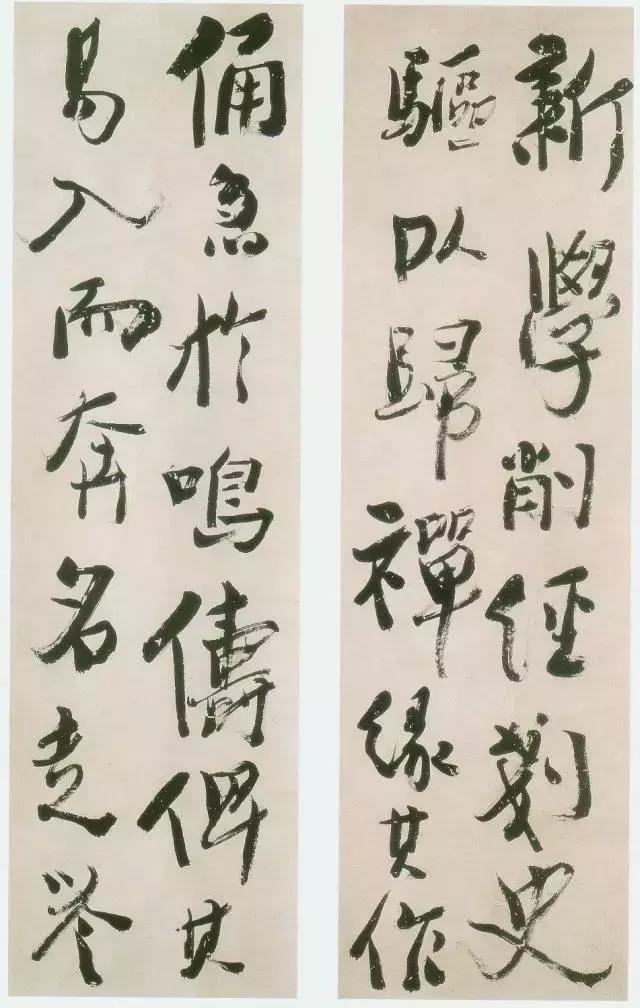 新學削經剗史
驅以歸禪緣其作
俑急於鳴儔俾其
易入而奔名走譽